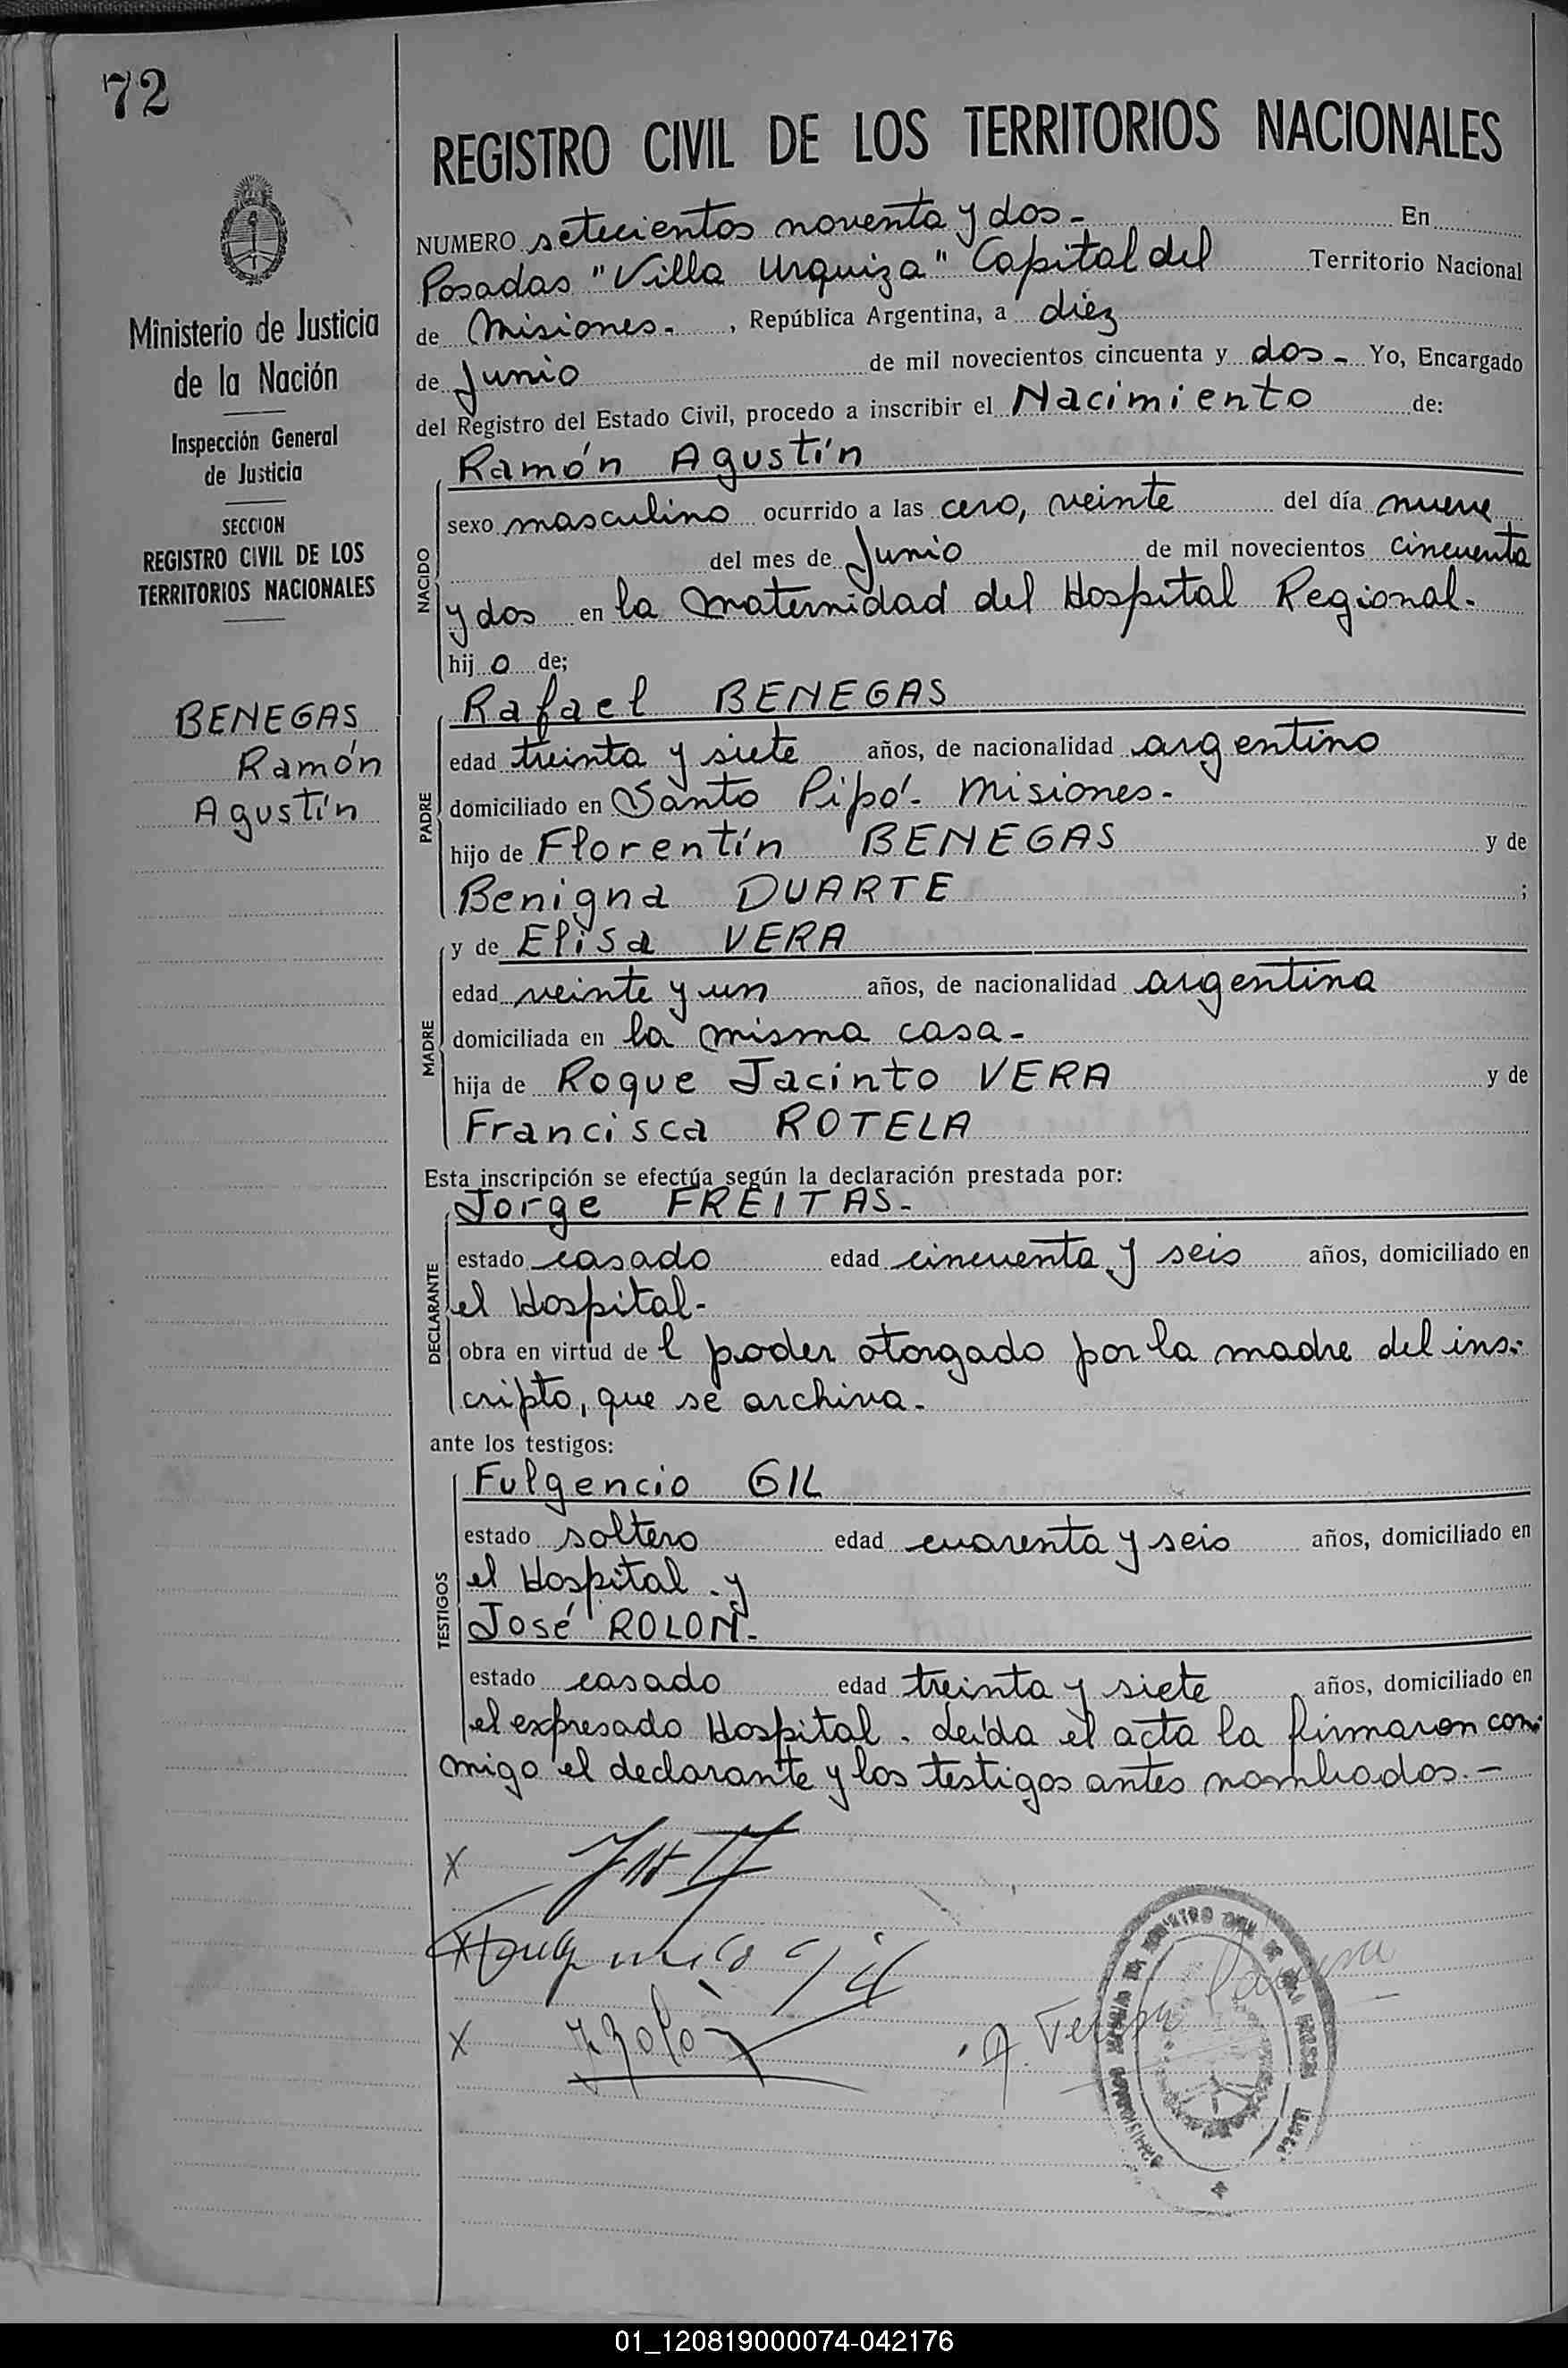 72
REGISTRO CIVIL DE LOS TERRITORIOS NACIONALES
Ministerio de Justicia
de la Nación
Inspección General
de Justicia
SECCION
REGISTRO CIVIL DE LOS
TERRITORIOS NACIONALES
BENEGAS
Ramón
Agustín
NUMERO setecientos noventa y dos- En
Posadas "Villa Urquiza" Capital del Territorio Nacional
de Misiones-, República Argentina, a diez
de Junio de mil novecientos cincuenta y dos- Yo, Encargado
del Registro del Estado Civil, procedo a inscribir el Nacimiento de:
Ramón Agustín
NACIDO
sexo masculino ocurrido a las cero, veinte del día nueve
del mes de Junio de mil novecientos cincuenta
y dos en la Maternidad del Hospital Regional-
hijo de;
Rafael BENEGAS
PADRE
edad treinta y siete años, de nacionalidad argentino
domiciliado en Santo Pipó- Misiones-
hijo de Florentín BENEGAS y de
Benigna DUARTE ;
y de Elisa VERA
MADRE
edad veinte y un años, de nacionalidad argentina
domiciliada en la misma casa-
hija de Roque Jacinto VERA y de
Francisca ROTELA
Esta inscripción se efectúa según la declaración prestada por:
Jorge FREITAS-
DECLARANTE
estado casado edad cincuenta y seis años, domiciliado en
el Hospital-
obra en virtud del poder otorgado por la madre del ins-
cripto, que se archiva-
ante los testigos:
Fulgencio GIL
TESTIGOS
estado soltero edad cuarenta y seis años, domiciliado en
el Hospital-y
José ROLON-
estado casado edad treinta y siete años, domiciliado en
el expresado Hospital. Leída el acta la firmaron con-
migo el declarante y los testigos antes nombrados.-
x
x
x
01_120819000074-042176